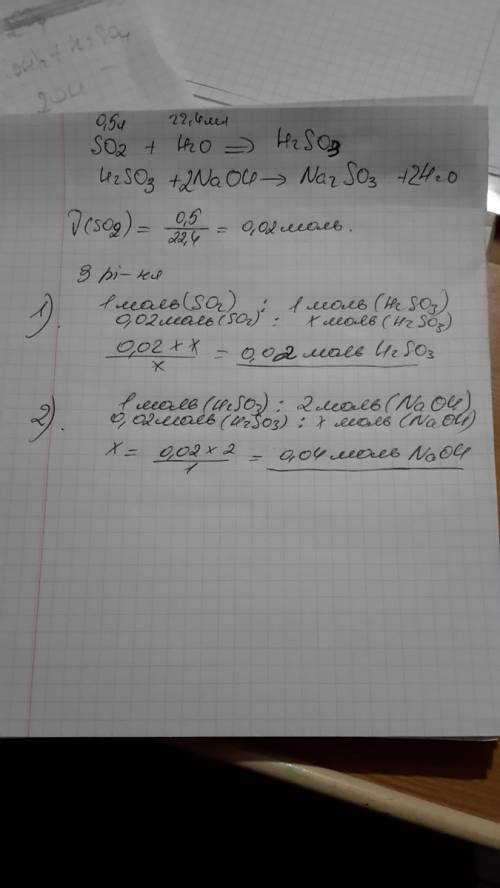 0,5л 22,4мл
SO2 + H2O => H2SO3
H2SO3 + 2NaOH → Na2SO3 + 2H2O
ν(SO2) = 0,5/22,4 = 0,02 моль.
З рі-ня
1). 1 моль (SO2) : 1 моль (H2SO3)
0,02 моль (SO2) : x моль (H2SO3)
0,02 × x / x = 0,02 моль H2SO3
2). 1 моль (H2SO3) : 2 моль (NaOH)
0,02 моль (H2SO3) : x моль (NaOH)
x = 0,02 × 2 / 1 = 0,04 моль NaOH